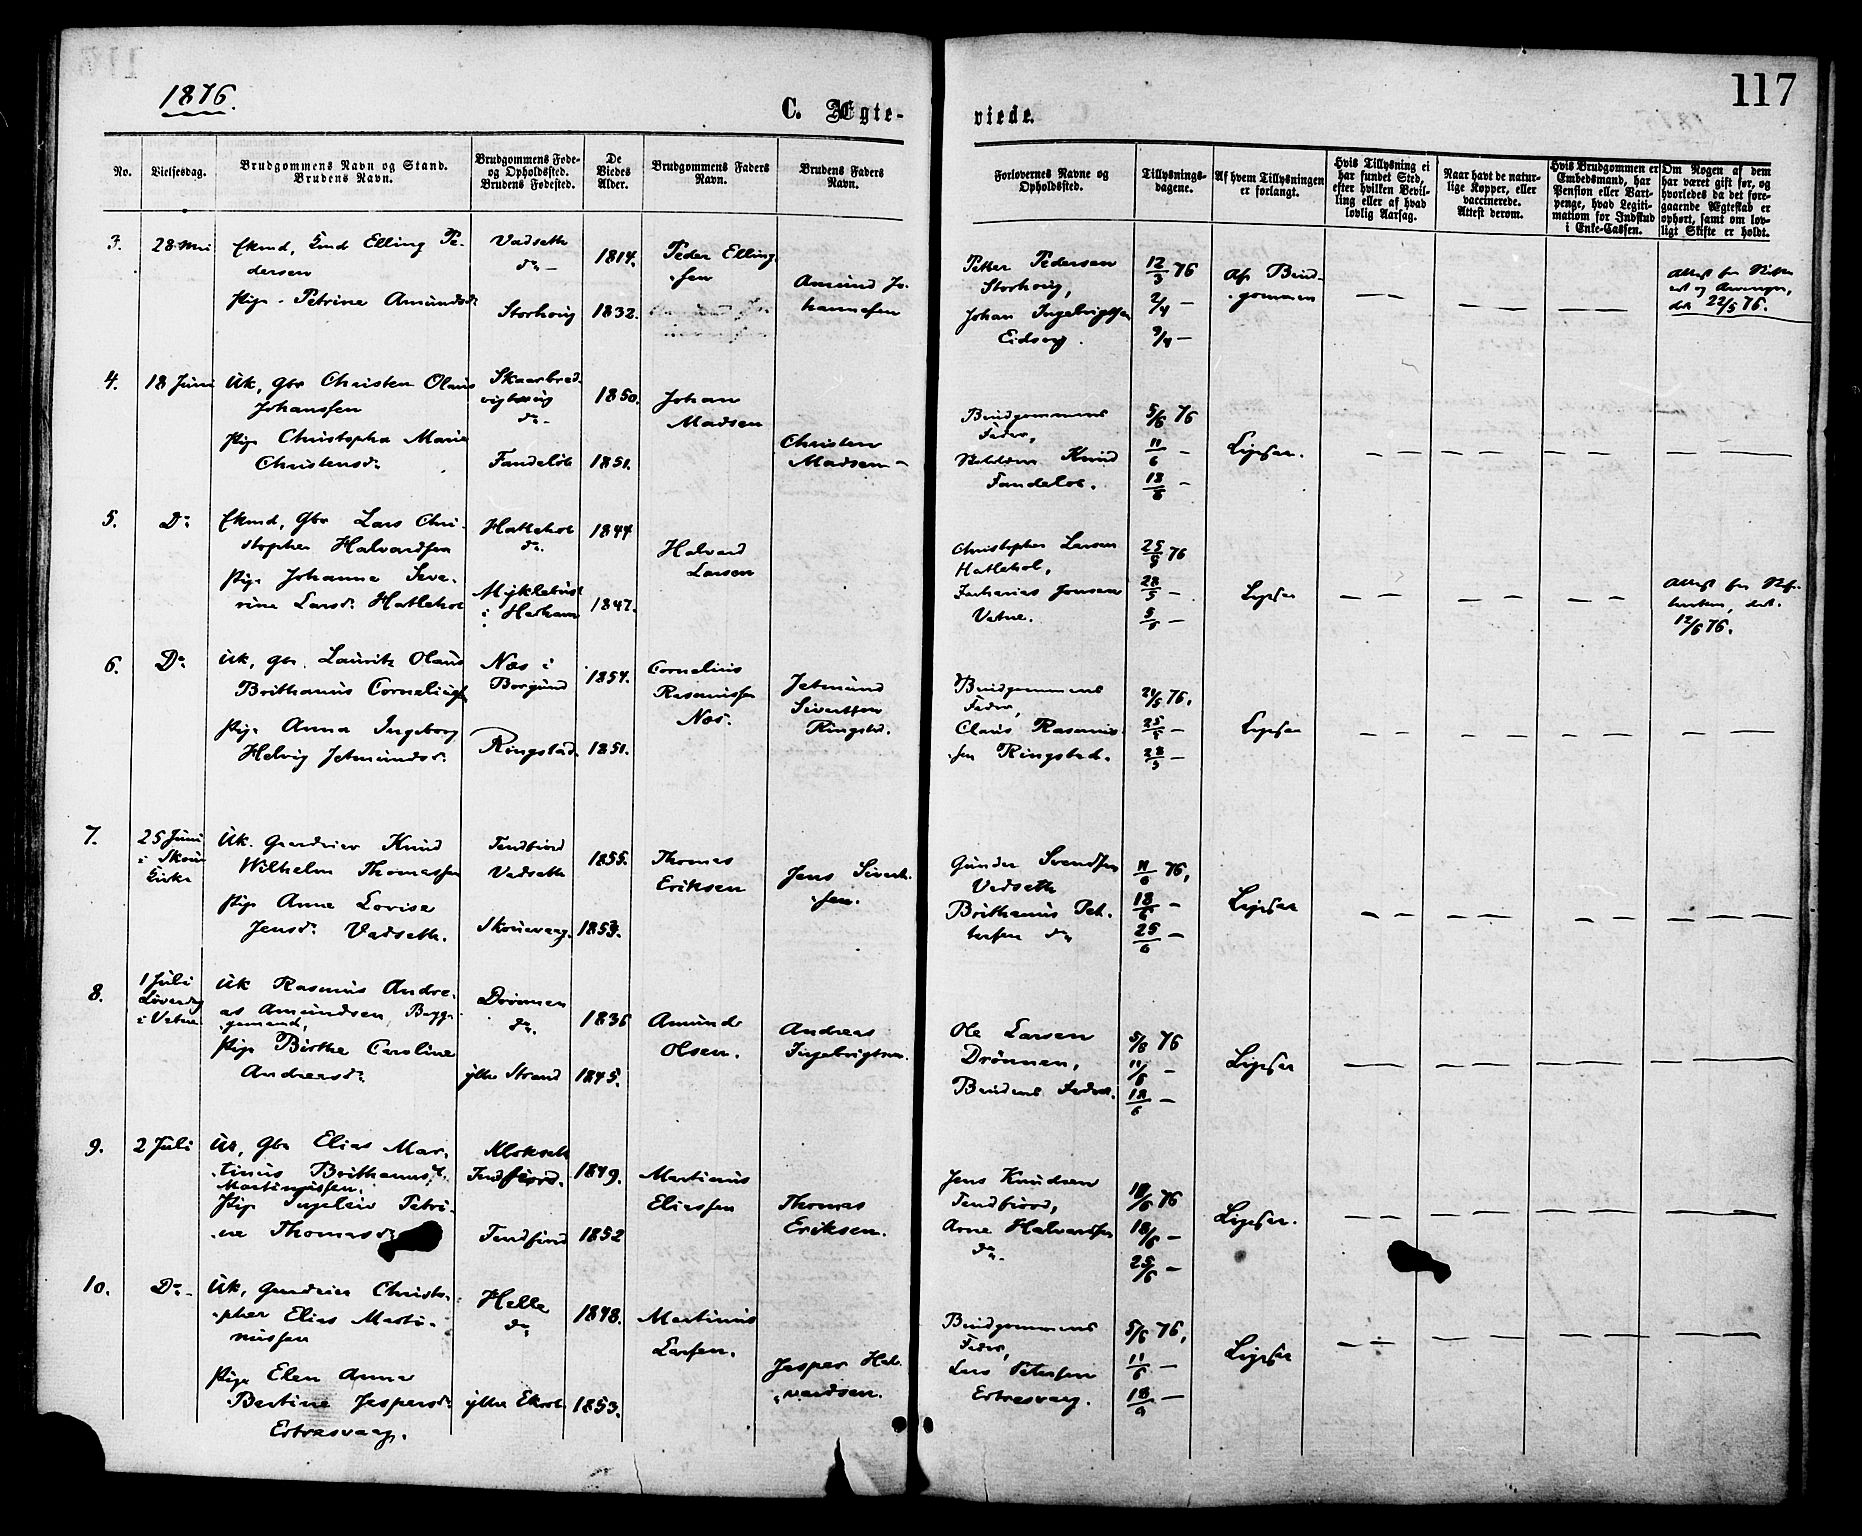 1876.
117
C. Ægte-
viede.
No.
Vielsesdag.
Brudgommens Navn og Stand.
Brudens Navn.
Brudgommens Føde-
og Opholdssted.
Brudens Fødested.
De
Viedes
Alder.
Brudgommens Faders
Navn.
Brudens Faders
Navn.
Forlovernes Navne og
Opholdssted.
Tillysnings-
dagene.
Af hvem Tillysningen
er forlangt.
Hvis Tillysning ei
har fundet Sted,
efter hvilken Bevil-
ling eller af hvad
lovlig Aarsag.
Naar havt de natur-
lige Kopper, eller
vaccinerede.
Attest derom.
Hvis Brudgommen er
Embedsmand, har
Pension eller Vart-
penge, hvad Legiti-
mation for Indskud
i Enke-Cassen.
Om Nogen af dem
har været gift før, og
hvorledes da det fore-
gaaende Ægteskab er
ophørt, samt om lov-
ligt Skifte er holdt.
3.
28 Mai
Ekmd, Gmd Elling Pe-
dersen
Pige Petrine Amundsdr
Vadseth
do -
Storhoug
1814.
1832.
Peder Elling-
sen
Amund Jo-
hannesen
Petter Pedersen
Storhoug,
Johan Ingebrigtsen
Eidsvog.
12/3 76
2/4 -
9/4 -
Af Brud-
gommen
22/5 76.
4.
18 Juni
Uk, Gbr Christen Olaus
Johanssen
Pige Christopha Marie
Christensdr
do -
1850.
1851.
Johan
Madsen
Christen
Madsen -
Brudgommens
Fader,
Knud
5/6 76
11/6 -
18/6 -
Ligesaa.
5.
Do
Ekmd, Gbr Lars Chri-
stopher Halvardsen
Pige Johanne Seve-
rine Larsdr Hatlehol
Hatlehol
do.
Myklebust
i Harham
1844
1847.
Halvard
Larsen
Christopher Larsen
Hatlehol,
Zacharias Jonsen
Vatne.
25/5 76
28/5 -
5/6 -
Ligesaa
12/6 76.
6.
Do
Uk, gbr. Lauritz Olaus
Brithanus Corneliusen
Pige Anna Ingeborg
Helvig Jetmundsdr.
Næs i
Borgund
Ringstad.
1854.
1851.
Cornelius
Rasmussen
Næs.
Jetmund
Sivertsen
Ringstad.
Brudgommens
Fader,
Claus Rasmus-
sen Ringstad.
21/5 76.
25/5 -
28/5 -
Ligesaa
7.
25 Juni
i Skou
Kirke
Uk. Gaardeier Knud
Wilhelm Thomassen
Pige Anne Lovise
Jensdr Vadseth.
Tendfiord
Vadseth
Skouevaag.
1855.
1853.
Thomas
Eriksen
Jens Sivert-
sen.
Gunder Svendsen
Vadseth
Brithanus Pet-
tersen do
11/6 76,
18/6 -
25/6 -
Ligesaa
8.
1 Juli
Løverdag
i Vatne
Uk Rasmus Andre-
as Amundsen, Bryg-
gemand,
Pige Birthe Caroline
Andreasdr
Drønnen
do.
ytre Strand
1836
1845.
Amund
Olsen.
Andreas
Ingebrigtsen.
Ole Larsen
Drönnen,
Brudens Fader.
5/6 76
11/6 -
18/6 -
Ligesaa
9.
2 Juli
Uk, Gbr Elias Mar-
tinus Brithanus
Martinussen.
Pige Ingeleiv Petri-
ne Thomasdr
Kloksæt
Tendfiord.
Tendfiord
1849.
1852
Martinus
Eliassen
Thomas
Eriksen.
Jens Knudsen
Tendfiord,
Arne Halvardsen
do.
11/6 76
18/6 -
25/6 -
Ligesaa.
10.
Do -
Uk, Gaardeier Christo-
pher Elias Marti-
nussen
Pige Elen Anna
Bertine Jespersdr
Ertresvaag.
Helle
do
ytre Ekrol
1848.
1853.
Martinus
Larsen.
Jesper Hal-
vardsen.
Brudgommens
Fader,
Lars Petersen
Ertresvaag.
5/6 76,
11/6 -
18/6 -
Ligesaa